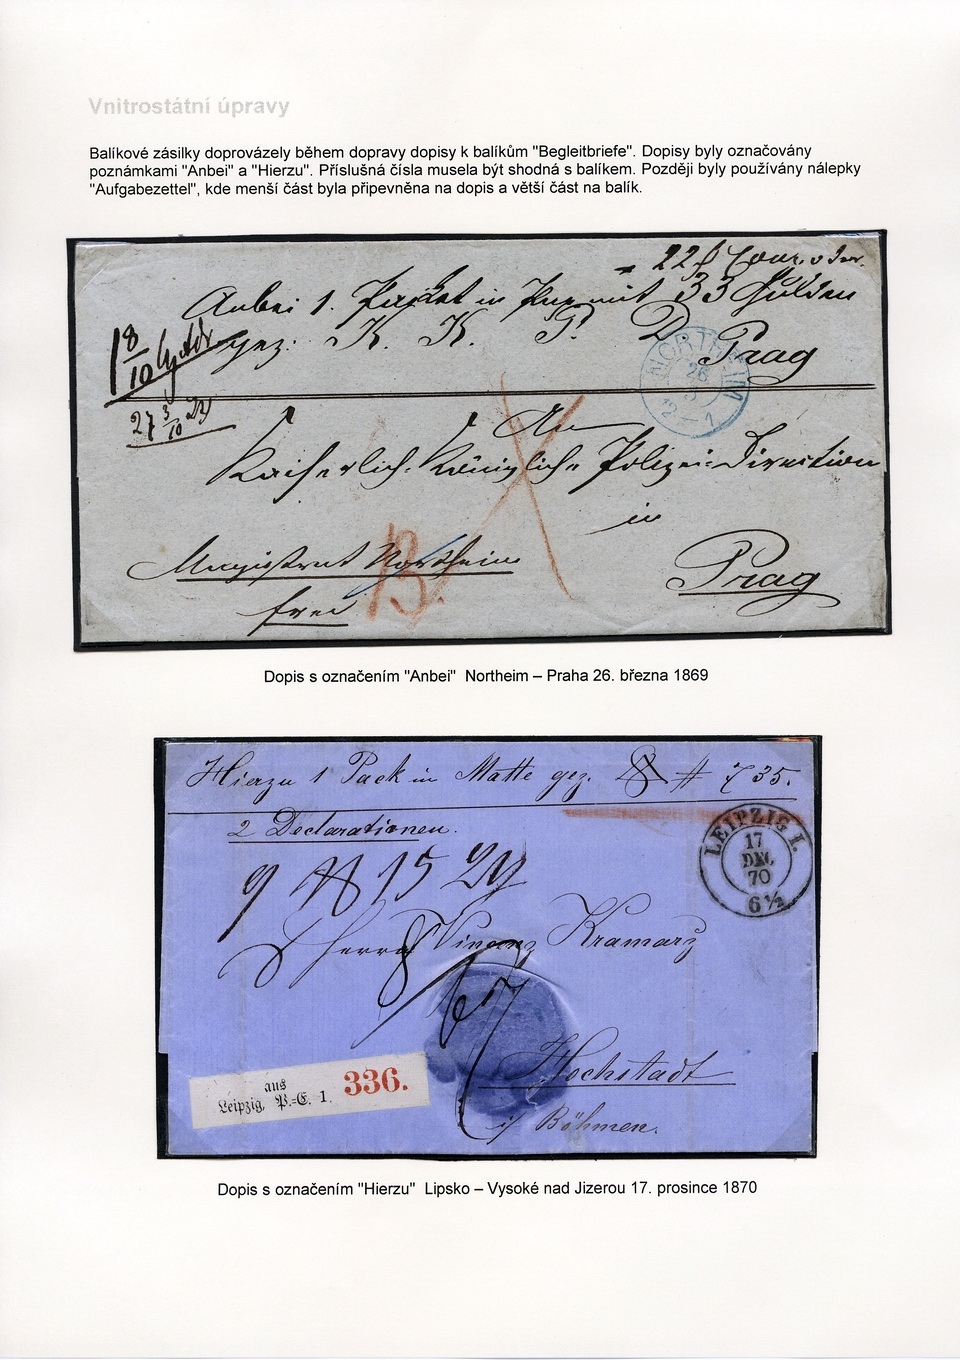 Vnitrostátní úpravy
Balíkové zásilky doprovázely během dopravy dopisy k balíkům "Begleitbriefe". Dopisy byly označovány
poznámkami "Anbei" a "Hierzu". Příslušná čísla musela být shodná s balíkem. Později byly používány nálepky
"Aufgabezettel", kde menší část byla připevněna na dopis a větší část na balík.
Anbei 1. Packet in Pap. mit 33 Gulden
gez: K. K. P. D Prag
NORTHEIM
26
3
12 – 1
An
Kaiserlich-Königliche Polizei-Direction
in
Prag
Magistrat Northeim
frei
13.
Dopis s označením "Anbei" Northeim – Praha 26. března 1869
Hierzu 1 Pack in Matte gez. # 735.
2 Declarationen.
LEIPZIG I.
17
DEC
70
6½
Herrn Vincenz Kramarz
Hochstadt
i/ Böhmen.
aus
Leipzig, P.-E. 1. 336.
Dopis s označením "Hierzu" Lipsko – Vysoké nad Jizerou 17. prosince 1870